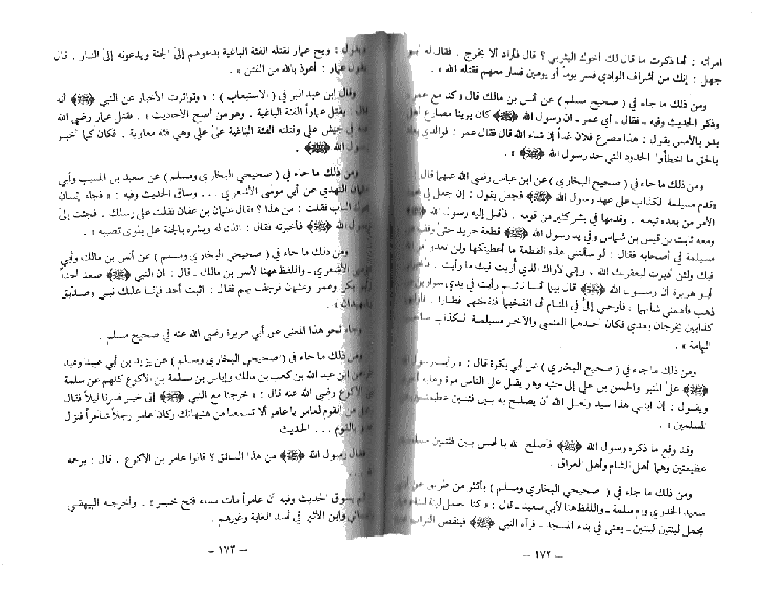 امرأته : أما ذكرت ما قال لك أخوك اليثربي ؟ قال فأراد ألا يخرج . فقال له أبو
جهل : إنك من أشراف الوادي فسر يوماً أو يومين فسار معهم فقتله الله » .
ومن ذلك ما جاء في ( صحيح مسلم ) عن أنس بن مالك قال وكنا مع عمر
وذكر الحديث وفيه ـ فقال ـ أي عمر ـ ان رسول الله ﷺ كان يرينا مصارع أهل
بدر بالأمس يقول : هذا مصرع فلان غداً إن شاء الله قال فقال عمر : فوالذي بعثه
بالحق ما أخطأوا الحدود التي حد رسول الله ﷺ » .
ومن ذلك ما جاء في ( صحيح البخاري ) عن ابن عباس رضي الله عنهما قال
«قدم مسيلمة الكذاب على عهد رسول الله ﷺ فجعل يقول : إن جعل لي محمد
الأمر من بعده تبعته . وقدمها في بشر كثير من قومه . فأقبل إليه رسول الله ﷺ
ومعه ثابت بن قيس بن شماس وفي يد رسول الله ﷺ قطعة جريد حتى وقف على
مسيلمة في أصحابه فقال : لو سألتني هذه القطعة ما أعطيتكها ولن تعدو أمر الله
فيك ولئن أدبرت ليعقرنك الله . وإني لأراك الذي أريت فيك ما رأيت . فأخبرني
أبو هريرة أن رسول الله ﷺ قال بينما أنا نائم رأيت في يدي سوارين من
ذهب فأهمني شأنهما . فأوحي إليّ في المنام أن انفخهما فنفختهما فطارا . فأولتهما
كذابين يخرجان بعدي فكان أحدهما العنسي والآخر مسيلمة الكذاب صاحب
اليمامة » .
ومن ذلك ما جاء في ( صحيح البخاري ) عن أبي بكرة قال : « رأيت رسول الله
ﷺ على المنبر والحسن بن علي إلى جنبه وهو يقبل على الناس مرة وعليه أخرى
ويقول : إن ابني هذا سيد ولعل الله أن يصلح به بين فئتين عظيمتين من
المسلمين » .
وقد وقع ما ذكره رسول الله ﷺ فأصلح الله بالحسن بين فئتين مسلمتين
عظيمتين وهما أهل الشام وأهل العراق .
ومن ذلك ما جاء في ( صحيحي البخاري ومسلم ) بأكثر من طريق عن أبي
سعيد الخدري وأم سلمة ـ واللفظ هنا لأبي سعيد ـ قال : « كنا نحمل لبنة لبنة وعمار
يحمل لبنتين لبنتين ـ يعني في بناء المسجد ـ فرآه النبي ﷺ فينفض التراب عنه
ـ ١٧٢ ـ
ويقول : ويح عمار تقتله الفئة الباغية يدعوهم إلى الجنة ويدعونه إلى النار . قال
يقول عمار : أعوذ بالله من الفتن » .
وقال ابن عبد البر في ( الاستيعاب ) : « وتواترت الأخبار عن النبي ﷺ أنه
قال : يقتل عماراً الفئة الباغية . وهو من أصح الأحاديث » . فقتل عمار رضي الله
عنه في جيش علي وقتلته الفئة الباغية على علي وهي فئة معاوية . فكان كما أخبر
رسول الله ﷺ .
ومن ذلك ما جاء في ( صحيحي البخاري ومسلم ) عن سعيد بن المسيب وأبي
عثمان النهدي عن أبي موسى الأشعري ... وساق الحديث وفيه : « فجاء إنسان
يحرك الباب فقلت : من هذا ؟ فقال عثمان بن عفان فقلت على رسلك . فجئت إلى
رسول الله ﷺ فأخبرته فقال : ائذن له وبشره بالجنة على بلوى تصيبه » .
ومن ذلك ما جاء في ( صحيحي البخاري ومسلم ) عن أنس بن مالك وأبي
موسى الأشعري ـ واللفظ هنا لأنس بن مالك ـ قال : أن النبي ﷺ صعد أحداً
وأبو بكر وعمر وعثمان فرجف بهم فقال : اثبت أحد فإنما عليك نبي وصدّيق
وشهيدان »
وجاء نحو هذا المعنى عن أبي هريرة رضي الله عنه في صحيح مسلم .
ومن ذلك ما جاء في ( صحيحي البخاري ومسلم ) عن يزيد بن أبي عبيد وعبد
الرحمن ابن عبد الله بن كعب بن مالك وإياس بن سلمة بن الأكوع كلهم عن سلمة
بن الأكوع رضي الله عنه قال : « خرجنا مع النبي ﷺ إلى خيبر فسرنا ليلاً فقال
رجل من القوم لعامر يا عامر ألا تسمعنا من هنيهاتك وكان عامر رجلاً شاعراً فنزل
يحدو بالقوم ... الحديث
فقال رسول الله ﷺ من هذا السائق ؟ قالوا عامر بن الأكوع . قال : يرحمه
ثم يسوق الحديث وفيه أن عامراً مات مساء فتح خيبر » . وأخرجه البيهقي
وابن الأثير في أسد الغابة وغيرهم .
ـ ١٧٣ ـ